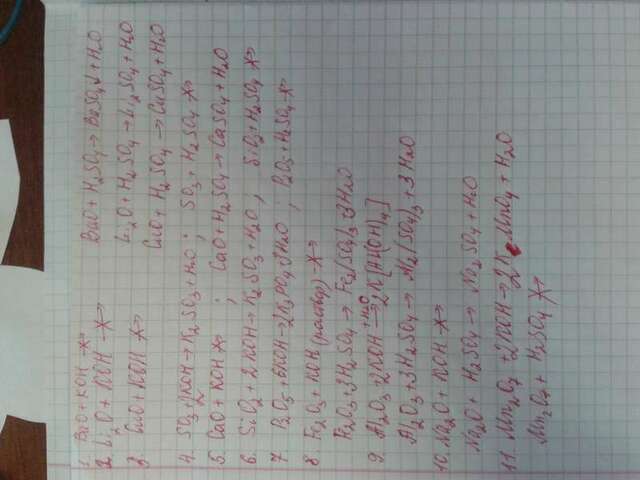 1. BaO + KOH -x-> BaO + H₂SO₄ → BaSO₄↓ + H₂O
2. Li₂O + KOH -x-> Li₂O + H₂SO₄ → Li₂SO₄ + H₂O
3. CuO + KOH -x-> CuO + H₂SO₄ → CuSO₄ + H₂O
4. SO₂ + 2KOH → K₂SO₃ + H₂O; SO₃ + H₂SO₄ -x->
5. CaO + KOH -x-> ; CaO + H₂SO₄ → CaSO₄ + H₂O
6. SiO₂ + 2KOH → K₂SiO₃ + H₂O; SiO₂ + H₂SO₄ -x->
7 P₂O₅ + 6KOH → 2K₃PO₄ + 3H₂O; P₂O₅ + H₂SO₄ -x->
8 Fe₂O₃ + KOH (раствор) -x->
Fe₂O₃ + 3H₂SO₄ → Fe₂(SO₄)₃ + 3H₂O
9. Al₂O₃ + 2KOH + H₂O → 2K[Al(OH)₄]
Al₂O₃ + 3H₂SO₄ → Al₂(SO₄)₃ + 3H₂O
10. Na₂O + KOH -x->
Na₂O + H₂SO₄ → Na₂SO₄ + H₂O
11. Mn₂O₇ + 2KOH → 2KMnO₄ + H₂O
Mn₂O₇ + H₂SO₄ -x->